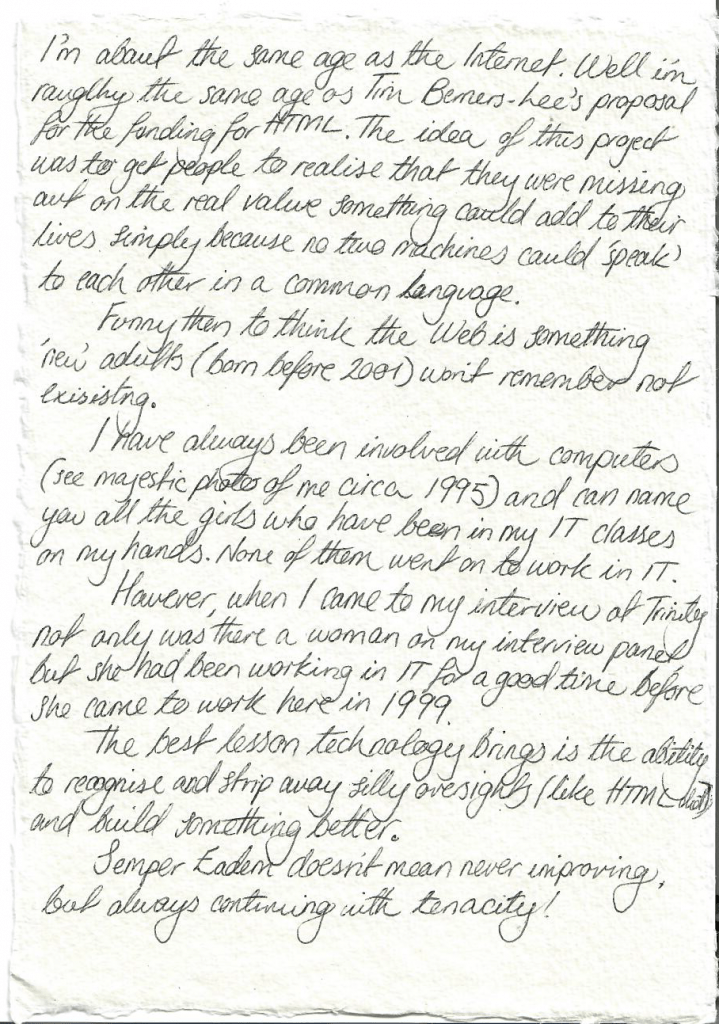 I'm about the same age as the Internet. Well i'm
roughly the same age as Tim Berners-Lee's proposal
for the funding for HTML. The idea of this project
was to get people to realise that they were missing
out on the real value something could add to their
lives simply because no two machines could 'speak'
to each other in a common language.
Funny then to think the Web is something
'new' adults (born before 2001) won't remember not
exisistng.
I have always been involved with computers
(see majestic photo of me circa 1995) and can name
you all the girls who have been in my IT classes
on my hands. None of them went on to work in IT.
However, when I came to my interview at Trinity
not only was there a woman on my interview panel
but she had been working in IT for a good time before
she came to work here in 1999.
The best lesson technology brings is the ability
to recognise and strip away silly oversights (like HTML did)
and build something better.
Semper Eadem doesn't mean never improving,
but always continuing with tenacity!